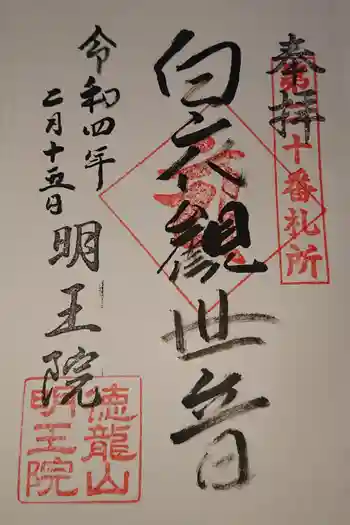 奉拝
第十番札所
白衣観世音
令和四年
二月十五日
明王院
徳龍山
明王院